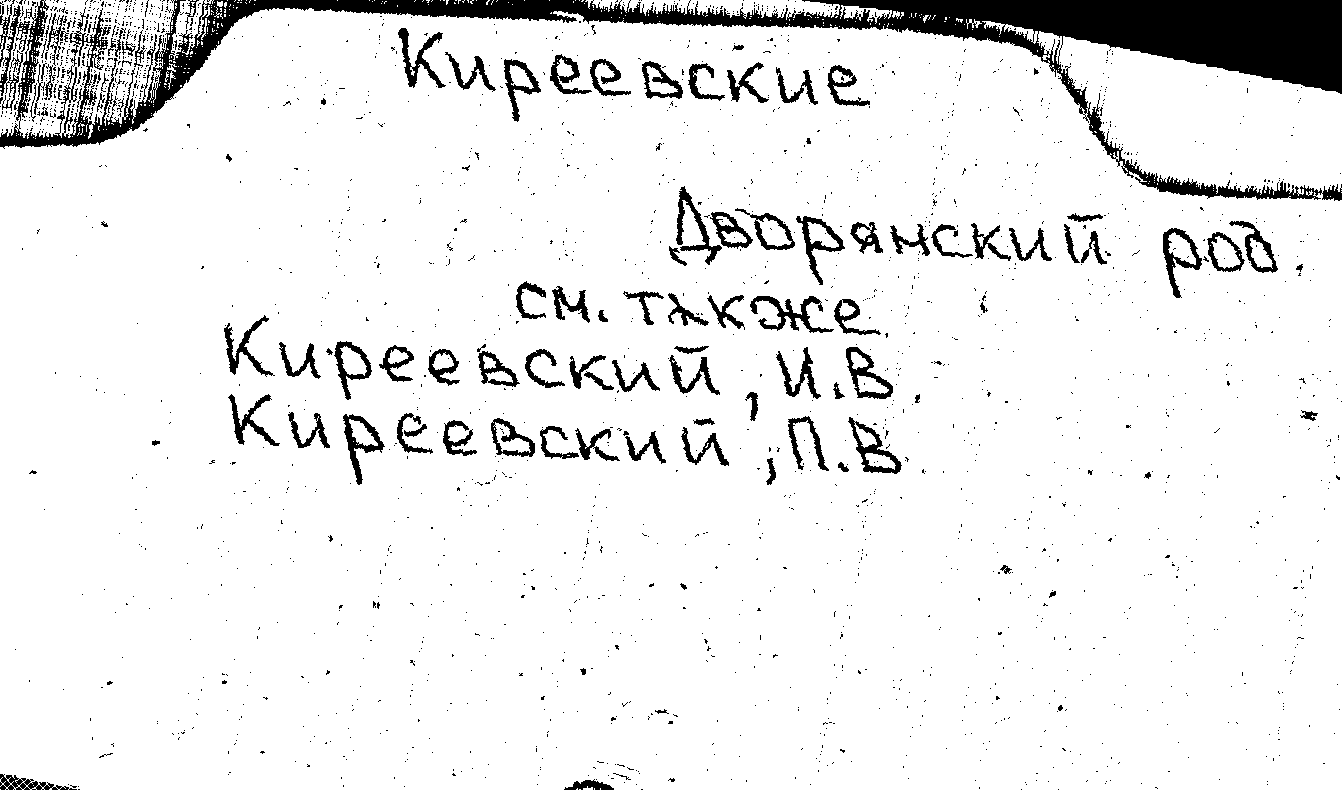 Киреевские
Дворянский род.
см. также
Киреевский, И.В.
Киреевский, П.В.